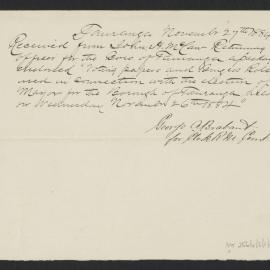 Tauranga November 27th 1884
Received from John H. McCaw Returning
officer for the Boro of Tauranga a packet
endorsed "Voting papers and Burgess Rolls
used in connection with the election of
Mayor for the Borough of Tauranga held
on Wednesday November 26th 1884"
George A Brabant
for Clerk R M Court